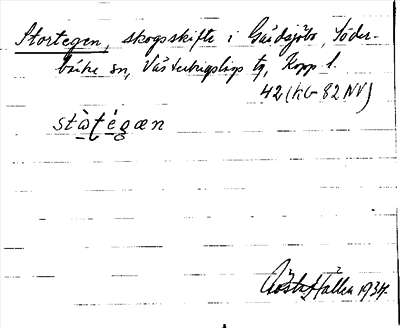 Stortegen, skogsskifte i Gårdsjöbo, Söder-
bärke sn, Västerbergslags tg, Kopp l.
42 (KG 82 NV)
stὰtégæn
Gösta Hallén 1934.